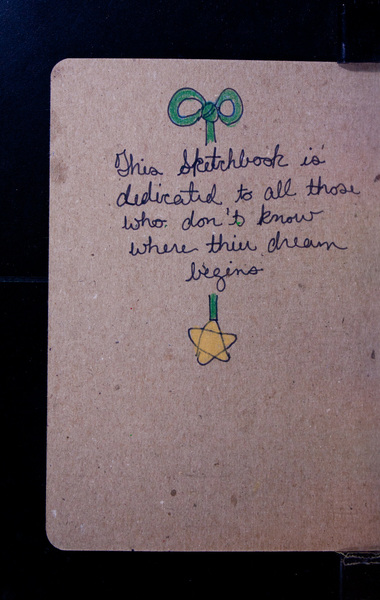 This Sketchbook is
dedicated to all those
who don't know
where thier dream
begins